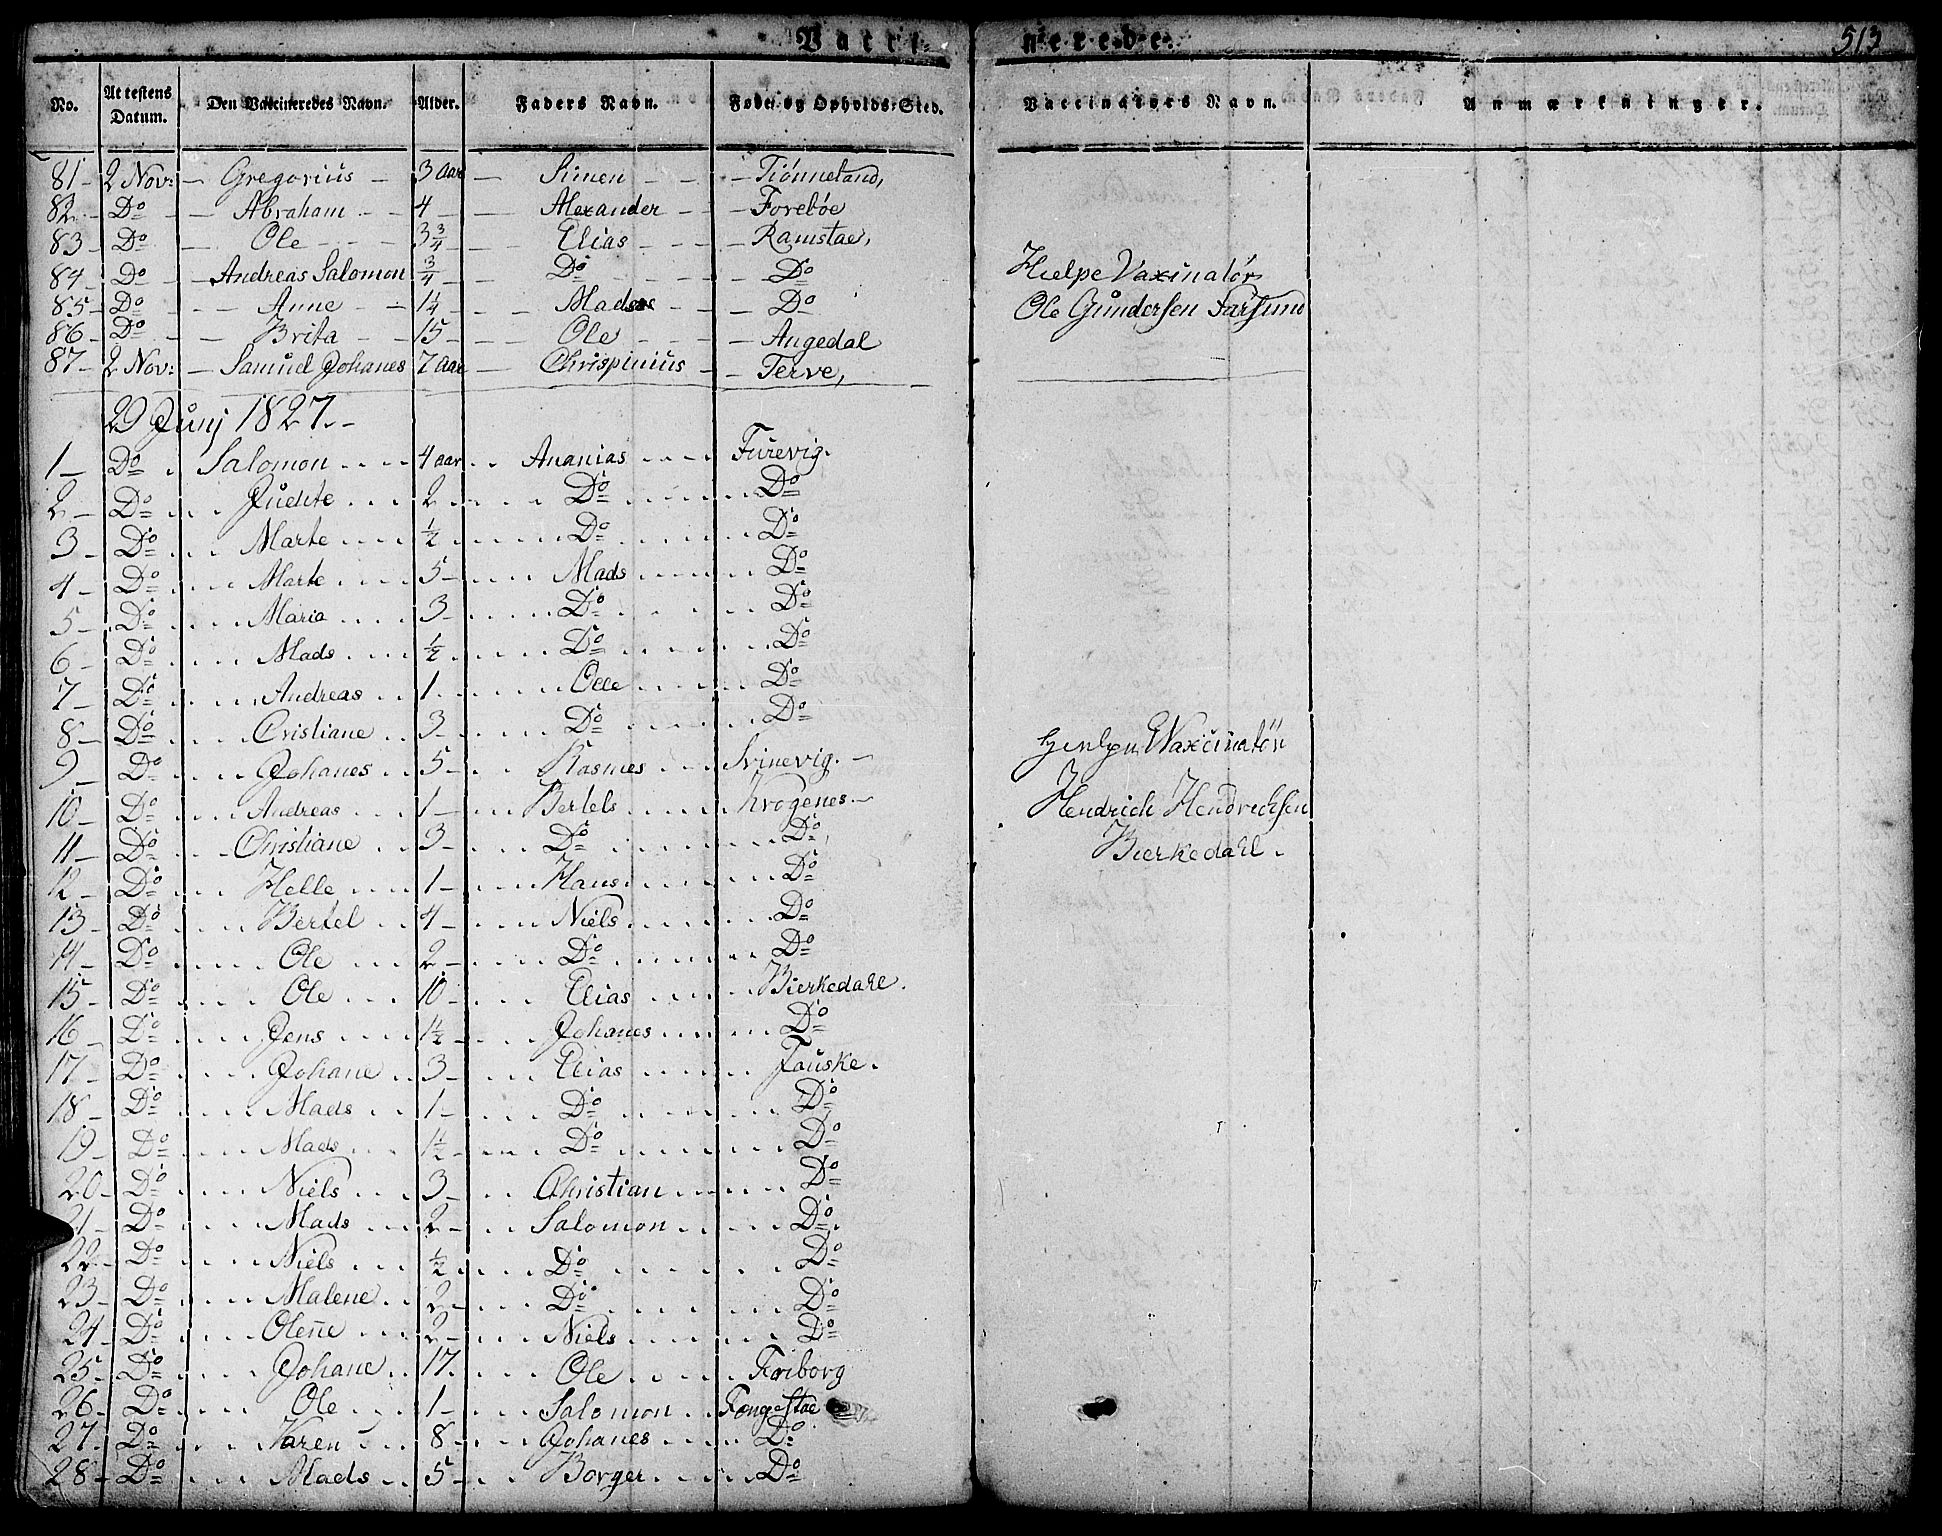 Vacci- nerede. 513
No. Attestens Datum. Den Vaccineredes Navn. Alder. Faders Navn. Føde- og Opholds-Sted. Vaccinateurs Navn. Anmærkninger.
81 - 2 Nov: - Gregorius - 3 Aar - Simen - - - Tiønneland,
82 - Do - - Abraham - - 4 - - Alexander - - Forebøe
83 - Do - Ole - - - 3 3/4 - - Elias - - - Ramstae,
84 - Do - - Andreas Salomon 3/4 - - Do - - - Do Hielpe Vaxinatør
85 - Do - - - Anne - - 1 1/4 - - Mads - - Do Ole Gundersen Farsund
86 - Do - - Brita - - 15 - - Ole - - - Augedal
87 - 2 Nov: - Samuel Johanes 7 Aar - Chrispinius - - Terve,
29 Junj 1827. -
1 - Do . Salomon .... 4 aar .. Ananias .... Furevig.
2 - Do ... Judite ... 2 - Do Do
3 - Do ... Marte .... 1/2 Do Do
4 - Do ... Marte ... 5 - Mads ..... Do
5 - Do .... Maria .... 3 - Do Do
6 - Do .... Mads .... 1/2 Do Do
7 - Do .... Andreas .. 1 - Olle .... Do
8 - Do .... Cristiane .. 3 - Do Do
Waxcinatör
9 - Do .... Johanes .. 5 - Rasmes ... Svinevig. -
10 - Do .... Andreas ... 1 - Bertels .... Krogenes. - Hendrich Hendrechsen
11 - Do ... Christiane .. 3 - Do Do Bierkedahl.
12 - Do .... Helle .... 1 - Hans ..... Do
13 - Do .... Bertel ... 4 - Niels ..... Do
14 - Do .... Ole ... 2 - Do Do
15 - Do .... Ole ... 10 - Elias ..... Bierkedahl.
16 - Do .... Jens .... 1 1/2 Johanes .... Do
17 - Do .... Johane .. 3 - Elias ..... Fauske.
18 - Do .... Mads .. 1 - Do Do
19 - Do .... Mads ... 1 1/2 Do Do
20 - Do .... Niels ... 3 - Christian .... Do
21 - Do .... Mads .. 2 - Salomon .... Do
22 - Do .... Niels ... 1/2 Do Do
23 - Do .... Malene .. 2 - Do Do
24 - Do .... Olene ... 2 - Niels ..... Do
25 - Do .... Johane .. 17. Ole ..... Friborg
26 - Do .... Ole ... 1 - Salomon .. Tongestae
27 - Do .... Karen ... 8 - Johanes .... Do
28 - Do .... Mads .. 5 - Borger .... Do